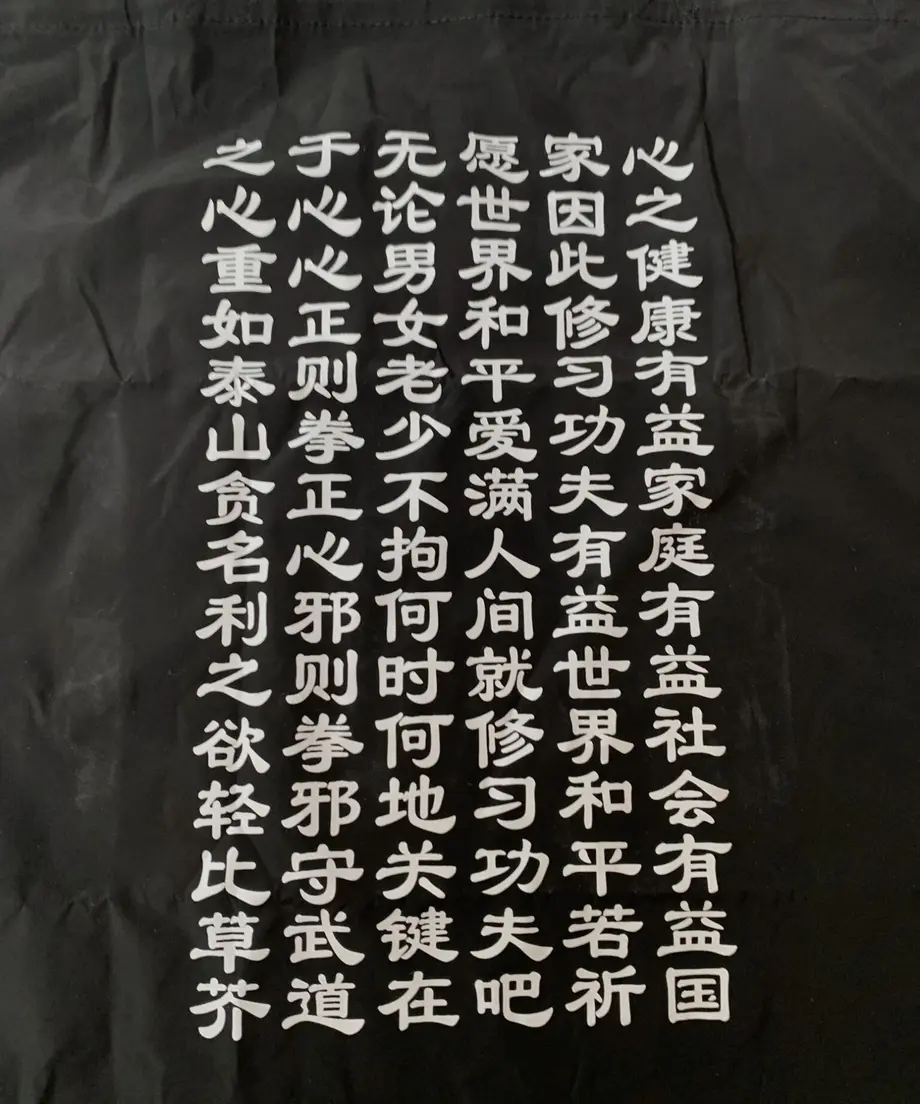 心之健康有益家庭有益社会有益国
家因此修习功夫有益世界和平若祈
愿世界和平爱满人间就修习功夫吧
无论男女老少不拘何时何地关键在
于心心正则拳正心邪则拳邪守武道
之心重如泰山贪名利之欲轻比草芥